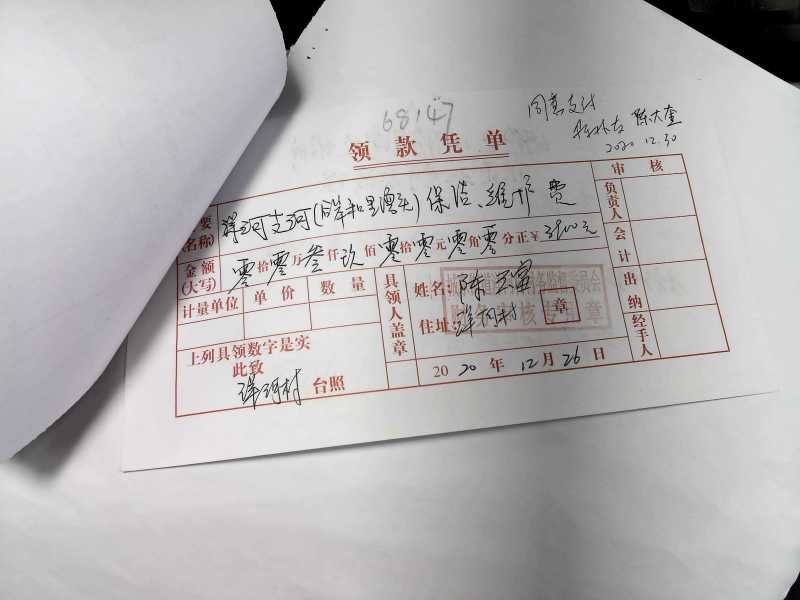 68147
同意支付
陈大奎
2020.12.30
领款凭单
审核
要
(名称)
洋河支河(岸和里澳头)保洁、维护费
负责人
金额
(大写)
零拾零万叁仟玖佰零拾零元零角零分正¥3900元
会计
计量单位 单价 数量
具领人盖章
姓名
陈
住址
洋河村
章
出纳
上列具领数字是实
此致
洋河村 台照
2020年12月26日
经手人